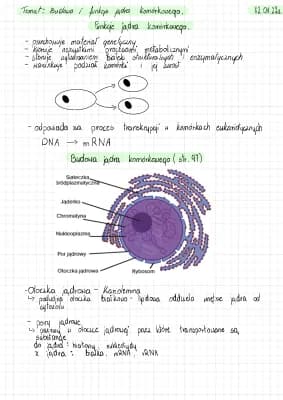 Temat: Budowa i funkcje jądra komórkowego.
12.01.22r.
Funkcje jądra komórkowego.
- przechowuje materiał genetyczny
- kieruje wszystkimi procesami metabolicznymi
- steruje wytwarzaniem białek strukturalnych i enzymatycznych
- podział komórki i jej
- odpowiada za proces transkrypcji w komórkach eukariotycznych
DNA → mRNA
Budowa jądra komórkowego (str. 97)
Siateczka śródplazmatyczna
Jąderko
Chromatyna
Nukleoplazma
Por jądrowy
Otoczka jądrowa
Rybosom
- Otoczka jądrowa - Kariotema
↳ podwójna otoczka białkowo - lipidowa oddziela wnętrze jądra od
cytozolu
- pory jądrowe
↳ otwory w otoczce jądrowej przez które transportowane są
substancje
do jądra: histony, nukleotydy
z jądra: białka, mRNA, rRNA